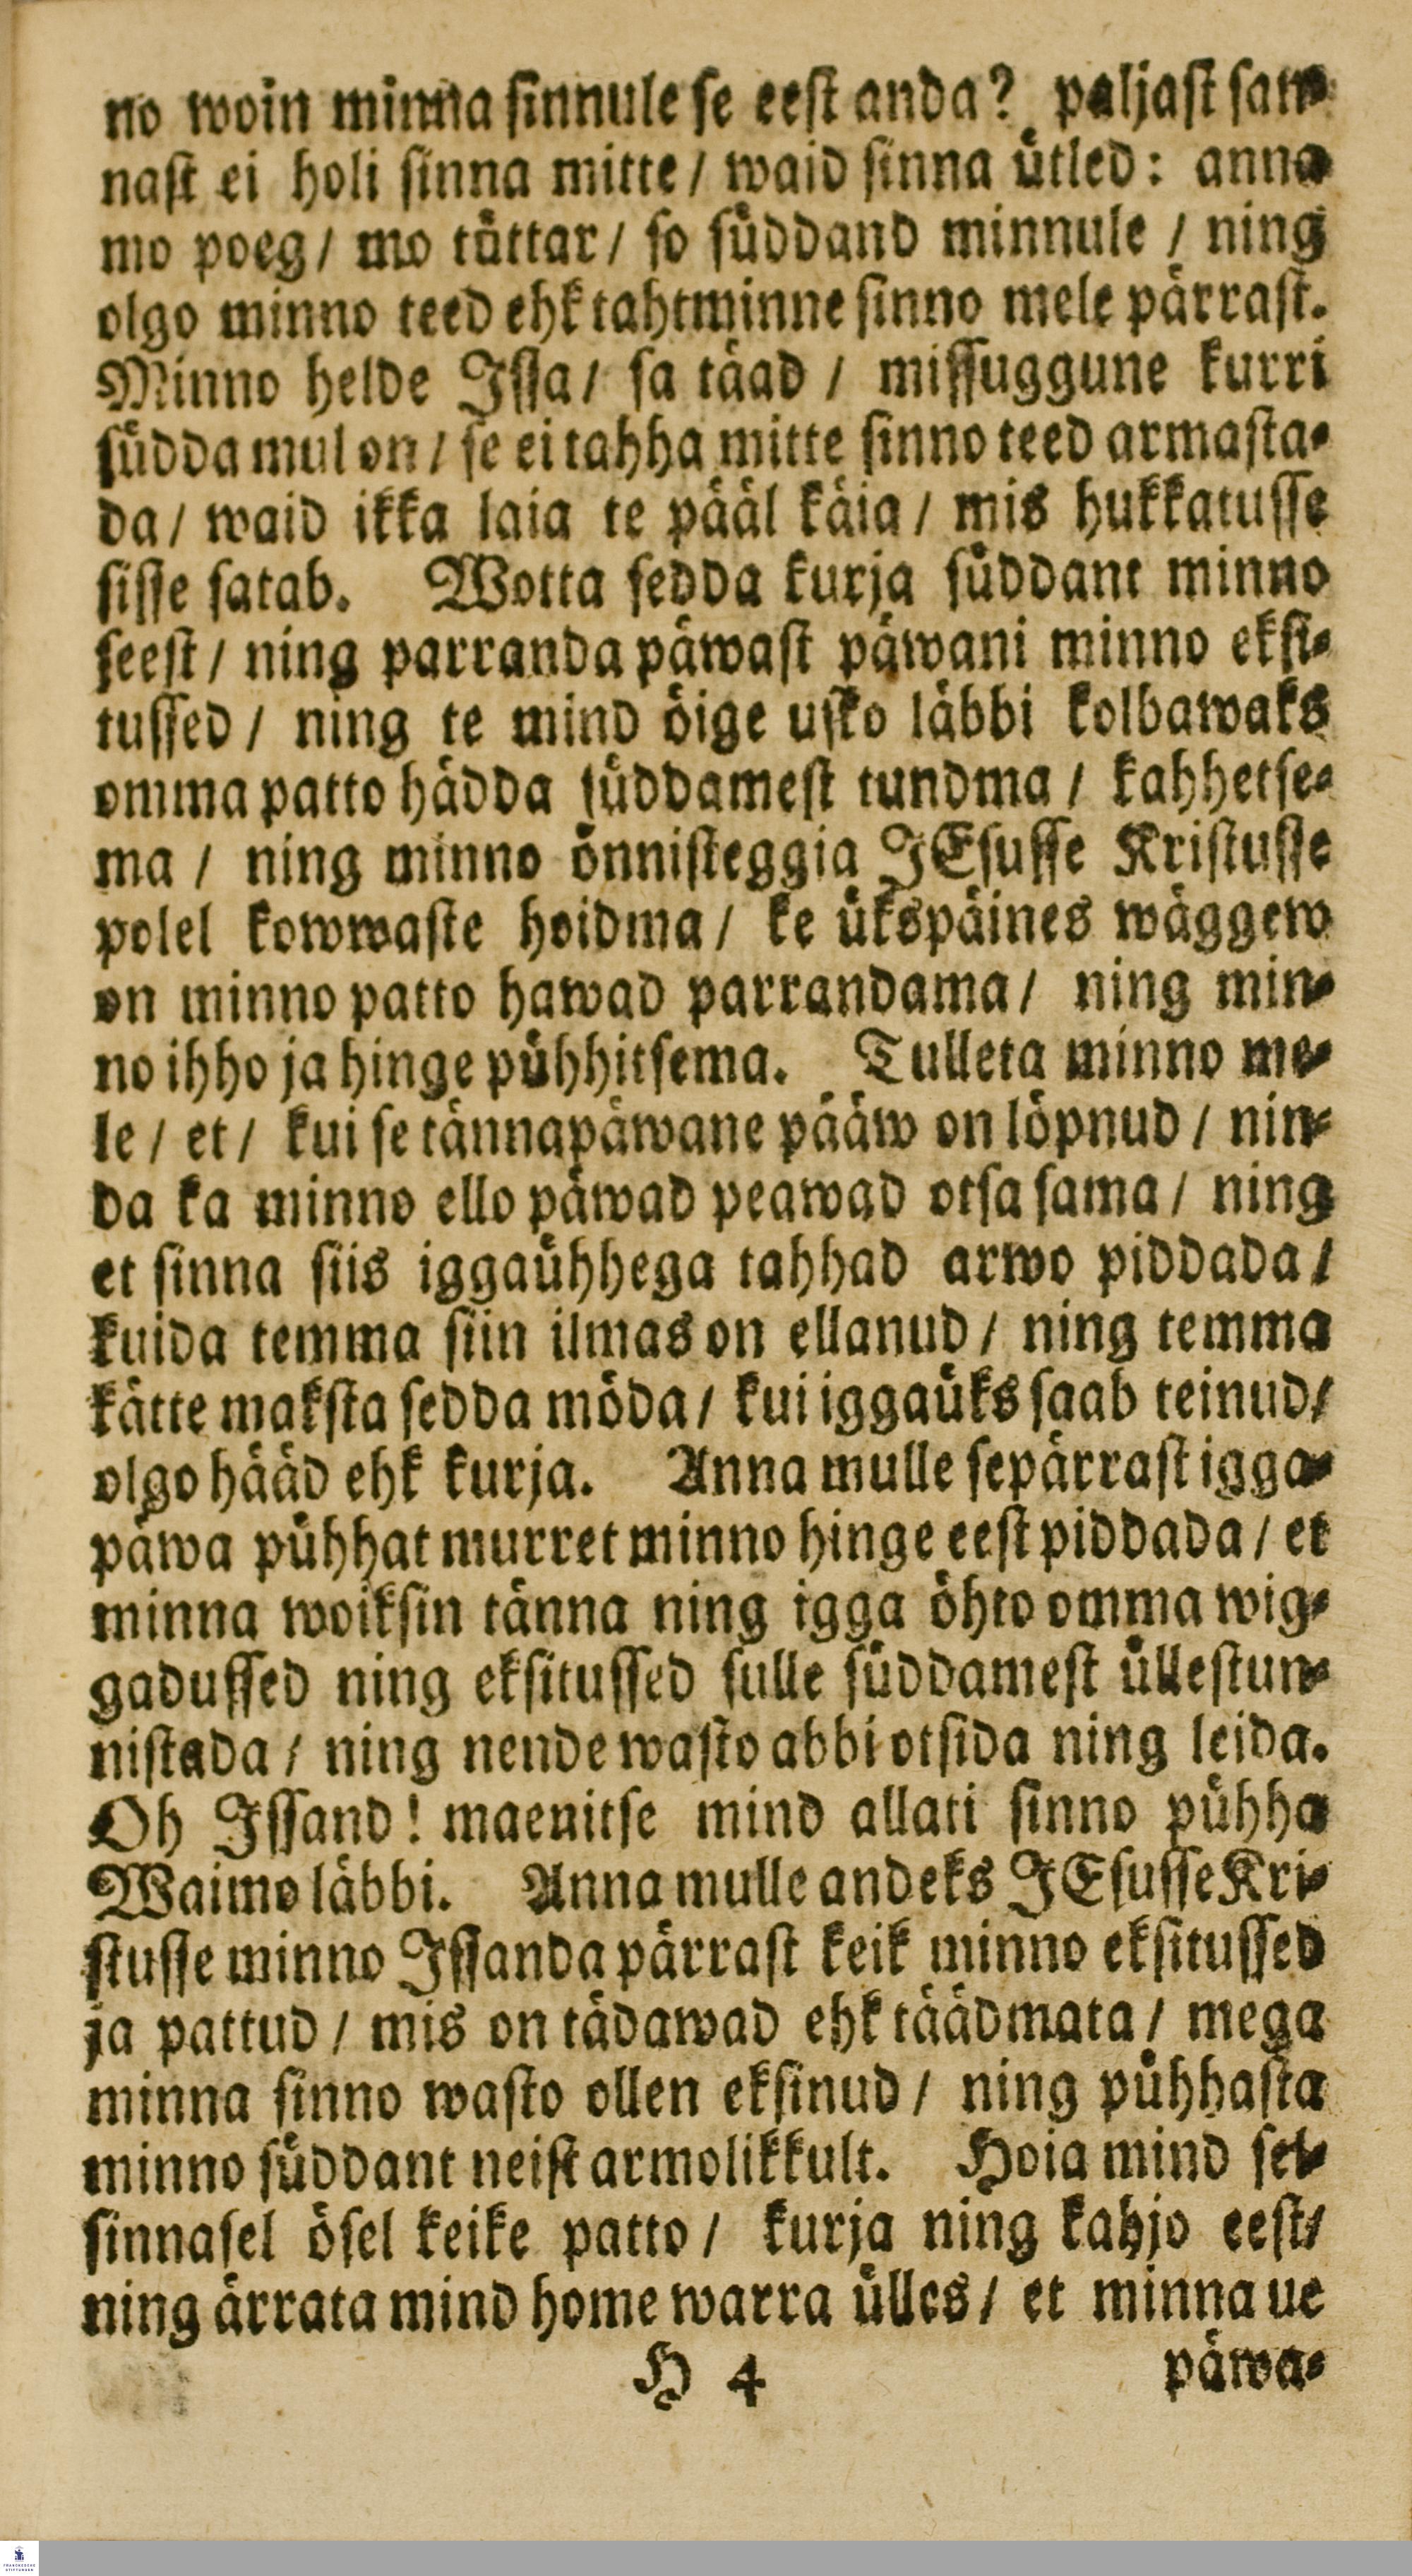 no woin minna sinnule se eest anda? paljast san⸗
nast ei holi sinna mitte / waid sinna ütled: anna
mo poeg / mo tüttar / so süddand minnule / ning
olgo minno teed ehk tahtminne sinno mele pärrast.
Minno helde Issa / sa tääd / missuggune kurri
südda mul on / se ei tahha mitte sinno teed armasta⸗
da / waid ikka laia te pääl käia / mis hukkatusse
sisse satab. Wotta sedda kurja süddant minno
seest / ning parranda päwast päwani minno eksi⸗
tussed / ning te mind öige usko läbbi kolbawaks
omma patto hädda süddamest tundma / kahhetse⸗
ma / ning minno önnisteggia JEsusse Kristusse
polel kowwaste hoidma / ke ükspäines wäggew
on minno patto hawad parrandama / ning min⸗
no ihho ja hinge pühhitsema. Tulleta minno me⸗
le / et / kui se tännapäwane pääw on löpnud / nin⸗
da ka minno ello päwad peawad otsa sama / ning
et sinna siis iggaühhega tahhad arwo piddada /
kuida temma siin ilmas on ellanud / ning temma
kätte maksta sedda möda / kui iggaüks saab teinud /
olgo hääd ehk kurja. Anna mulle sepärrast igga⸗
päwa pühhat murret minno hinge eest piddada / et
minna woiksin tänna ning igga öhto omma wig⸗
gadussed ning eksitussed sulle süddamest üllestun⸗
nistada / ning nende wasto abbi otsida ning leida.
Oh Issand! maenitse mind allati sinno pühha
Waimo läbbi. Anna mulle andeks JEsusse Kri⸗
stusse minno Issanda pärrast keik minno eksitussed
ja pattud / mis on tädawad ehk täädmata / mega
minna sinno wasto ollen eksinud / ning pühhasta
minno süddant neist armolikkult. Hoia mind sel⸗
sinnasel ösel keike patto / kurja ning kahjo eest /
ning ärrata mind home warra ülles / et minna ue
H 4 päwa⸗
FRANCKESCHE STIFTUNGEN